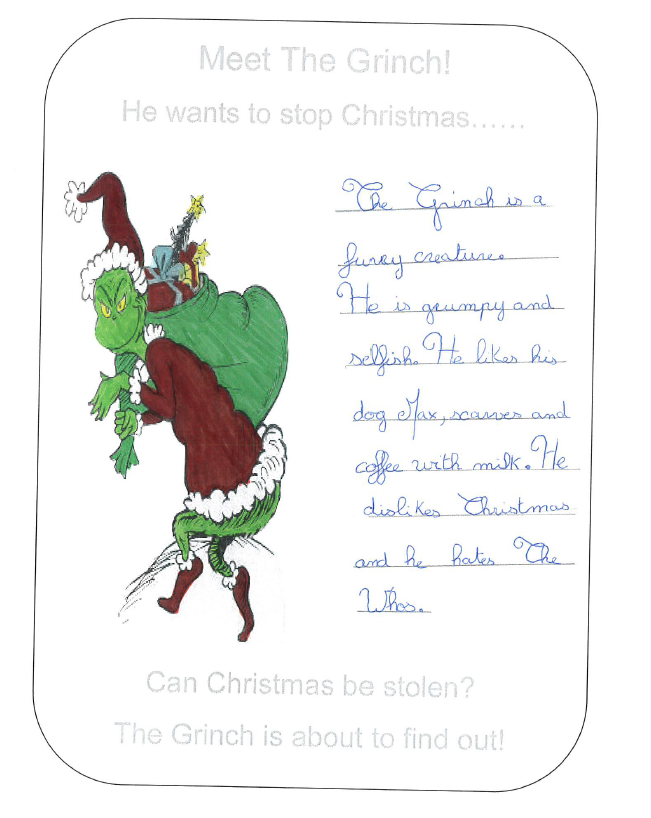 Meet The Grinch!
He wants to stop Christmas......
The Grinch is a
furry creature.
He is grumpy and
selfish. He likes his
dog Max, scarves and
coffee with milk. He
dislikes Christmas
and he hates The
Whos.
Can Christmas be stolen?
The Grinch is about to find out!